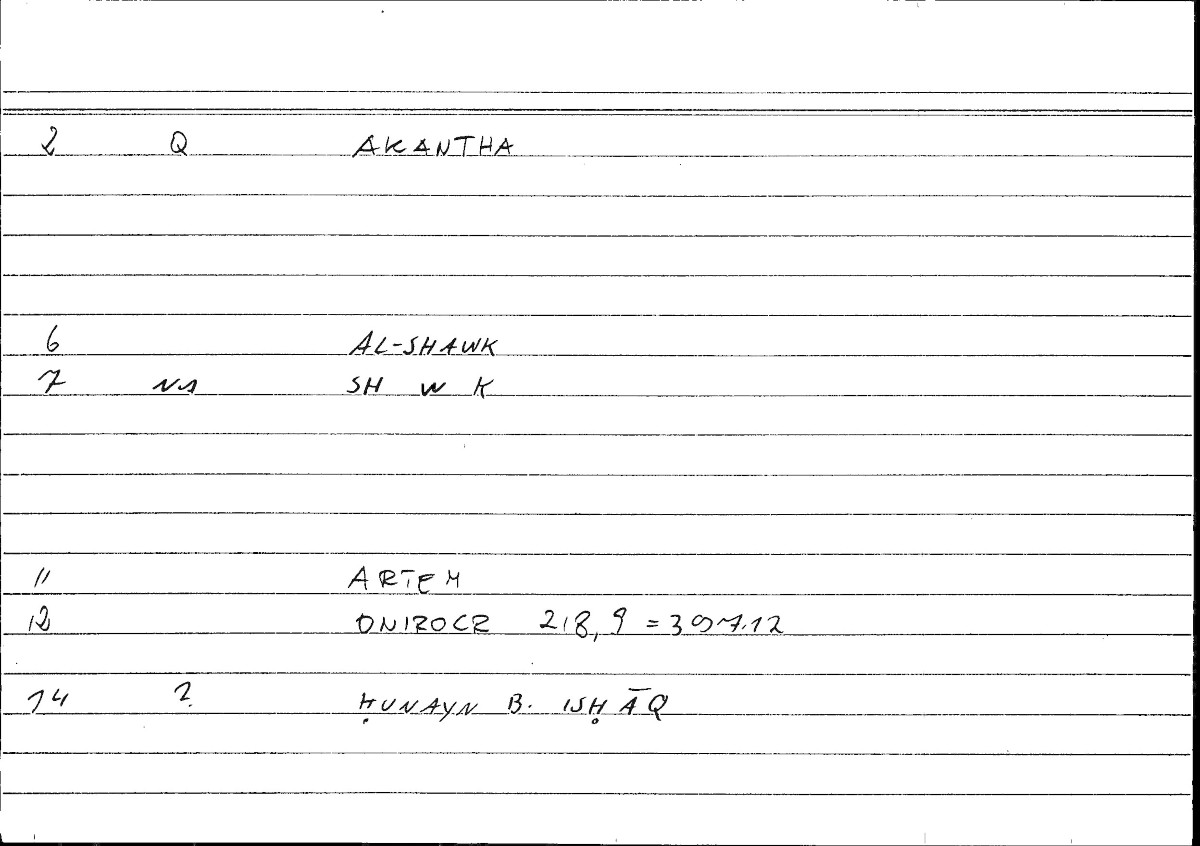 2 Q AKANTHA
6 AL-SHAWK
7 NS SH W K
11 ARTEM
12 ONIROCR 218,9 = 397.12
14 ? ḤUNAYN B. ISḤĀQ